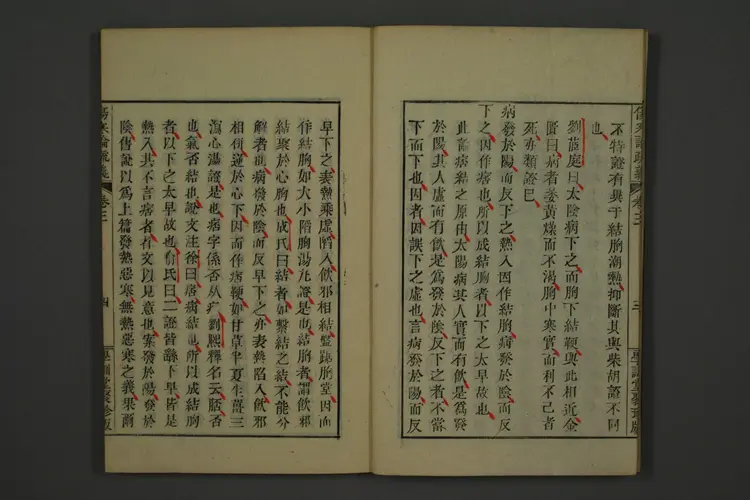 傷寒論疏義 卷三 三 學訓堂聚珍版
不特證有異于結胸潮熱抑斷其與柴胡證不同
也
劉茝庭曰太陰病下之而胸下結鞕與此相近金
匱曰病者萎黃燥而不渴胸中寒實而利不已者
死亦類證已
病發於陽而反下之熱入因作結胸病發於陰而反
下之因作痞也所以成結胸者以下之太早故也
此論病結之原由太陽病其人實而有飲是爲發
於陽其人虛而有飲是爲發於陰反下之者不當
下而下也因者因誤下之虛也言病發於陽而反
早下之表熱乘虛陷入飲邪相結盤踞胸堂因而
作結胸如大小陷胸湯允證是也結胸者謂飲邪
結聚於心胸也成氏曰結者如繫結之結不能分
解者也病發於陰而反早下之亦表熱陷入飲邪
相併迸於心下因而作痞鞕如甘草半夏生薑三
瀉心湯證是也痞字係否从疒劉熙釋名云痞否
也氣否結也說文注徐曰痞病結也所以成結胸
者以下之太早故也俞氏曰二證皆繇下早皆是
熱入其不言痞者省文以見意也案發於陽發於
陰舊說以爲上篇發熱惡寒無熱惡寒之義果爾
傷寒論疏義 卷三 四 學訓堂聚珍版